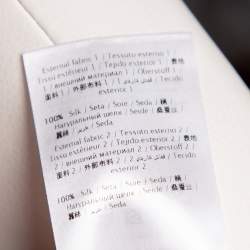 External fabric 1 / Tessuto esterno 1
/ Tissu extérieur 1 / Tejido exterior 1
/ внешний материал 1 / Oberstoff 1 /
面料 1 / 外部布料 1 /
exterior 1
100% Silk / Seta / Soie / Seda /
Натуральный шелк / Seide /
蠶絲 / حرير / Seda
External fabric 2 / Tessuto esterno
2 / Tissu extérieur 2 / Tejido exterior
2 / внешний материал 2 / Oberstoff 2 /
面料 2 / 外部布料 2 / Tecido
exterior 2
100% Silk / Seta / Soie / Seda /
Натуральный шелк / Seide /
蠶絲 / حرير / Seda